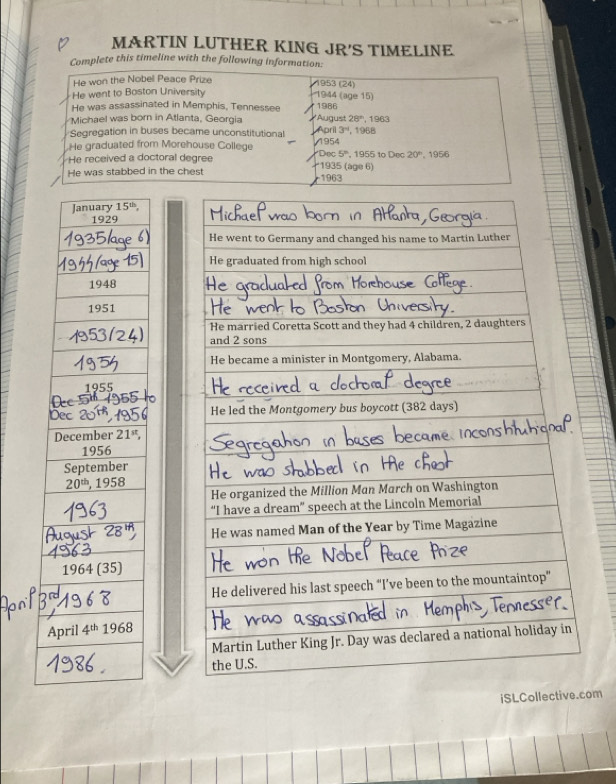 MARTIN LUTHER KING JR'S TIMELINE
Complete this timeline with the following information:
He won the Nobel Peace Prize 1953 (24)
He went to Boston University 1944 (age 15)
He was assassinated in Memphis, Tennessee 1986
Michael was born in Atlanta, Georgia August 28th, 1963
Segregation in buses became unconstitutional April 3rd, 1968
He graduated from Morehouse College 1954
He received a doctoral degree Dec 5th, 1955 to Dec 20th, 1956
He was stabbed in the chest 1935 (age 6)
1963
January 15th,
1929
Michael was born in Atlanta, Georgia.
1935 (age 6)
He went to Germany and changed his name to Martin Luther
1944 (age 15)
He graduated from high school
1948
He graduated from Morehouse College.
1951
He went to Boston University.
1953 (24)
He married Coretta Scott and they had 4 children, 2 daughters
and 2 sons
1954
He became a minister in Montgomery, Alabama.
1955
He received a doctoral degree
Dec 5th 1955 to
Dec 20th, 1956
He led the Montgomery bus boycott (382 days)
December 21st,
1956
Segregation in buses became inconstitutional.
September
20th, 1958
He was stabbed in the chest
1963
He organized the Million Man March on Washington
"I have a dream" speech at the Lincoln Memorial
August 28th,
1963
He was named Man of the Year by Time Magazine
1964 (35)
He won the Nobel Peace Prize
April 3rd, 1968
He delivered his last speech "I've been to the mountaintop"
April 4th 1968
He was assassinated in Memphis, Tennessee.
1986.
Martin Luther King Jr. Day was declared a national holiday in
the U.S.
iSLCollective.com